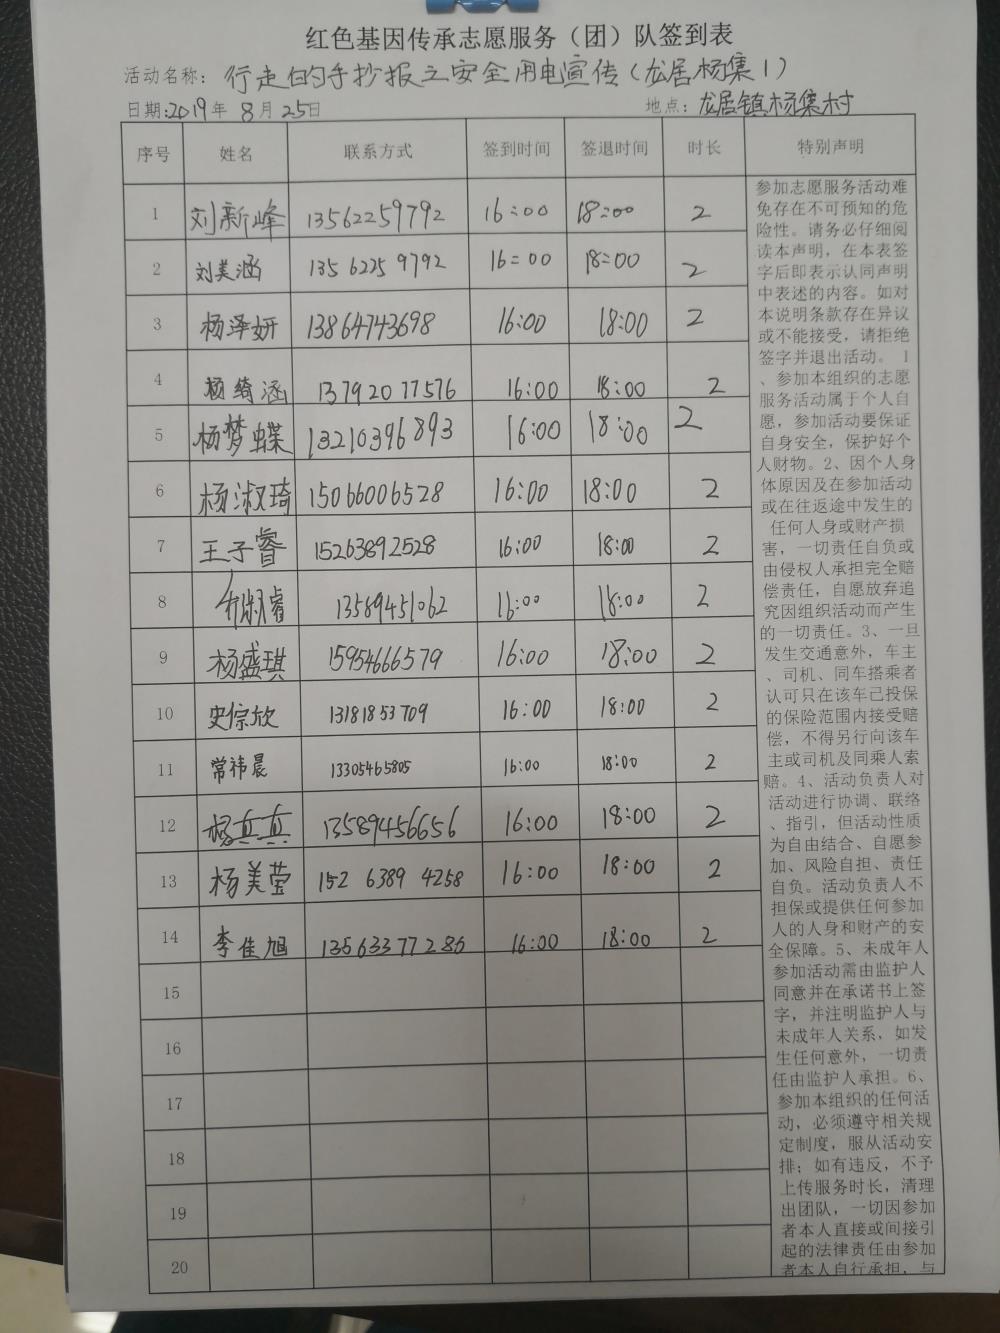 红色基因传承志愿服务（团）队签到表
活动名称：行走的手抄报之安全用电宣传（龙居杨集1）
日期:2019年8月25日 地点：龙居镇杨集村
序号 姓名 联系方式 签到时间 签退时间 时长 特别声明
1 刘新峰 13562259792 16:00 18:00 2
2 刘美涵 13562259792 16:00 18:00 2
3 杨泽妍 13864743698 16:00 18:00 2
4 杨绮涵 13792077576 16:00 18:00 2
5 杨梦蝶 13210396893 16:00 18:00 2
6 杨淑琦 15066006528 16:00 18:00 2
7 王子睿 15263892528 16:00 18:00 2
8 13589451062 16:00 18:00 2
9 杨盛琪 15954666579 16:00 18:00 2
10 史倧欣 13181853709 16:00 18:00 2
11 常祎晨 13305465805 16:00 18:00 2
12 杨真真 13589456656 16:00 18:00 2
13 杨美莹 152 6389 4258 16:00 18:00 2
14 李佳旭 13563377286 16:00 18:00 2
15
16
17
18
19
20
参加志愿服务活动难
免存在不可预知的危
险性。请务必仔细阅
读本声明，在本表签
字后即表示认同声明
中表述的内容。如对
本说明条款存在异议
或不能接受，请拒绝
签字并退出活动。1
、参加本组织的志愿
服务活动属于个人自
愿，参加活动要保证
自身安全，保护好个
人财物。2、因个人身
体原因及在参加活动
或在往返途中发生的
任何人身或财产损
害，一切责任自负或
由侵权人承担完全赔
偿责任，自愿放弃追
究因组织活动而产生
的一切责任。3、一旦
发生交通意外，车主
、司机、同车搭乘者
认可只在该车已投保
的保险范围内接受赔
偿，不得另行向该车
主或司机及同乘人索
赔。4、活动负责人对
活动进行协调、联络
、指引，但活动性质
为自由结合、自愿参
加、风险自担、责任
自负。活动负责人不
担保或提供任何参加
人的人身和财产的安
全保障。5、未成年人
参加活动需由监护人
同意并在承诺书上签
字，并注明监护人与
未成年人关系，如发
生任何意外，一切责
任由监护人承担。6、
参加本组织的任何活
动，必须遵守相关规
定制度，服从活动安
排；如有违反，不予
上传服务时长，清理
出团队，一切因参加
者本人直接或间接引
起的法律责任由参加
者本人自行承担，与